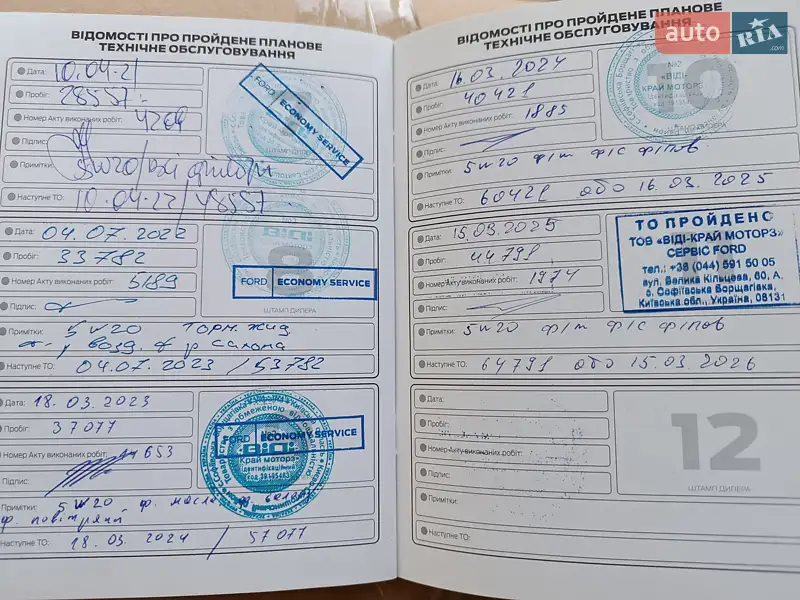 ВІДОМОСТІ ПРО ПРОЙДЕНЕ ПЛАНОВЕ
ТЕХНІЧНЕ ОБСЛУГОВУВАННЯ
Дата: 10.04.21
Пробіг: 28557
Номер Акту виконаних робіт: 4269
Підпис:
Примітки: 5W20
Наступне ТО: 10.04.22/48557
FORD ECONOMY SERVICE
ШТАМП ДИЛЕРА
Дата: 04.07.2022
Пробіг: 33782
Номер Акту виконаних робіт: 5189
Підпис:
Примітки: 5W20 Торм. жид
возд. ф р салона
Наступне ТО: 04.07.2023 / 53782
ВІДІ
8
FORD ECONOMY SERVICE
ШТАМП ДИЛЕРА
Дата: 18.03.2023
Пробіг: 37077
Номер Акту виконаних робіт: 653
Підпис:
Примітки: 5W20 ф. масла
ф. повітряний
Наступне ТО: 18.03.2024 / 57077
FORD ECONOMY SERVICE
ВІДІ
Край моторз
ідентифікаційний
ВІДОМОСТІ ПРО ПРОЙДЕНЕ ПЛАНОВЕ
ТЕХНІЧНЕ ОБСЛУГОВУВАННЯ
auto RIA.com
Дата: 16.03.2024
Пробіг: 40421
Номер Акту виконаних робіт: 1885
Підпис:
Примітки: 5W20 філ філс філпов
Наступне ТО: 60421 або 16.03.2025
№2
«ВІДІ-
КРАЙ МОТОРЗ»
10
ШТАМП ДИЛЕРА
Дата: 15.03.2025
Пробіг: 44791
Номер Акту виконаних робіт: 1974
Підпис:
Примітки: 5W20 філ філс філпов
Наступне ТО: 64791 або 15.03.2026
ТО ПРОЙДЕНО
ТОВ «ВІДІ-КРАЙ МОТОРЗ»
СЕРВІС FORD
тел.: +38 (044) 591 50 05
вул. Велика Кільцева, 60, А,
с. Софіївська Борщагівка,
Київська обл., Україна, 08131
Дата:
Пробіг:
Номер Акту виконаних робіт:
Підпис:
Примітки:
Наступне ТО:
12
ШТАМП ДИЛЕРА